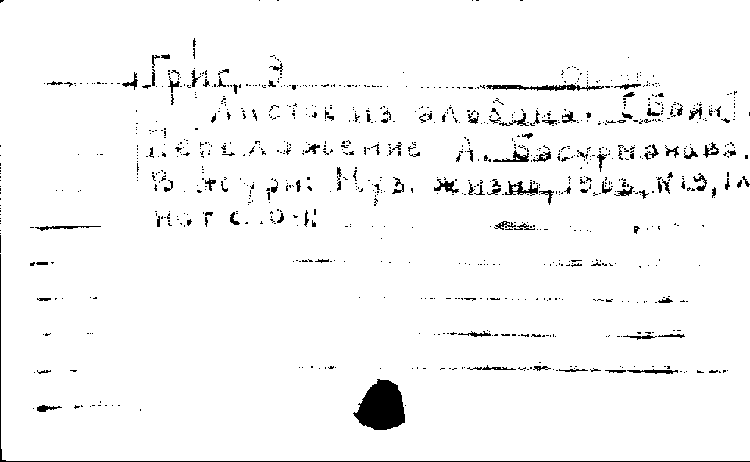 Григ, Э.
Листок из альбома. [Баян].
Переложение А. Басурманова.
В журн: Муз. жизнь, 1963, №19, 1л
нот с.